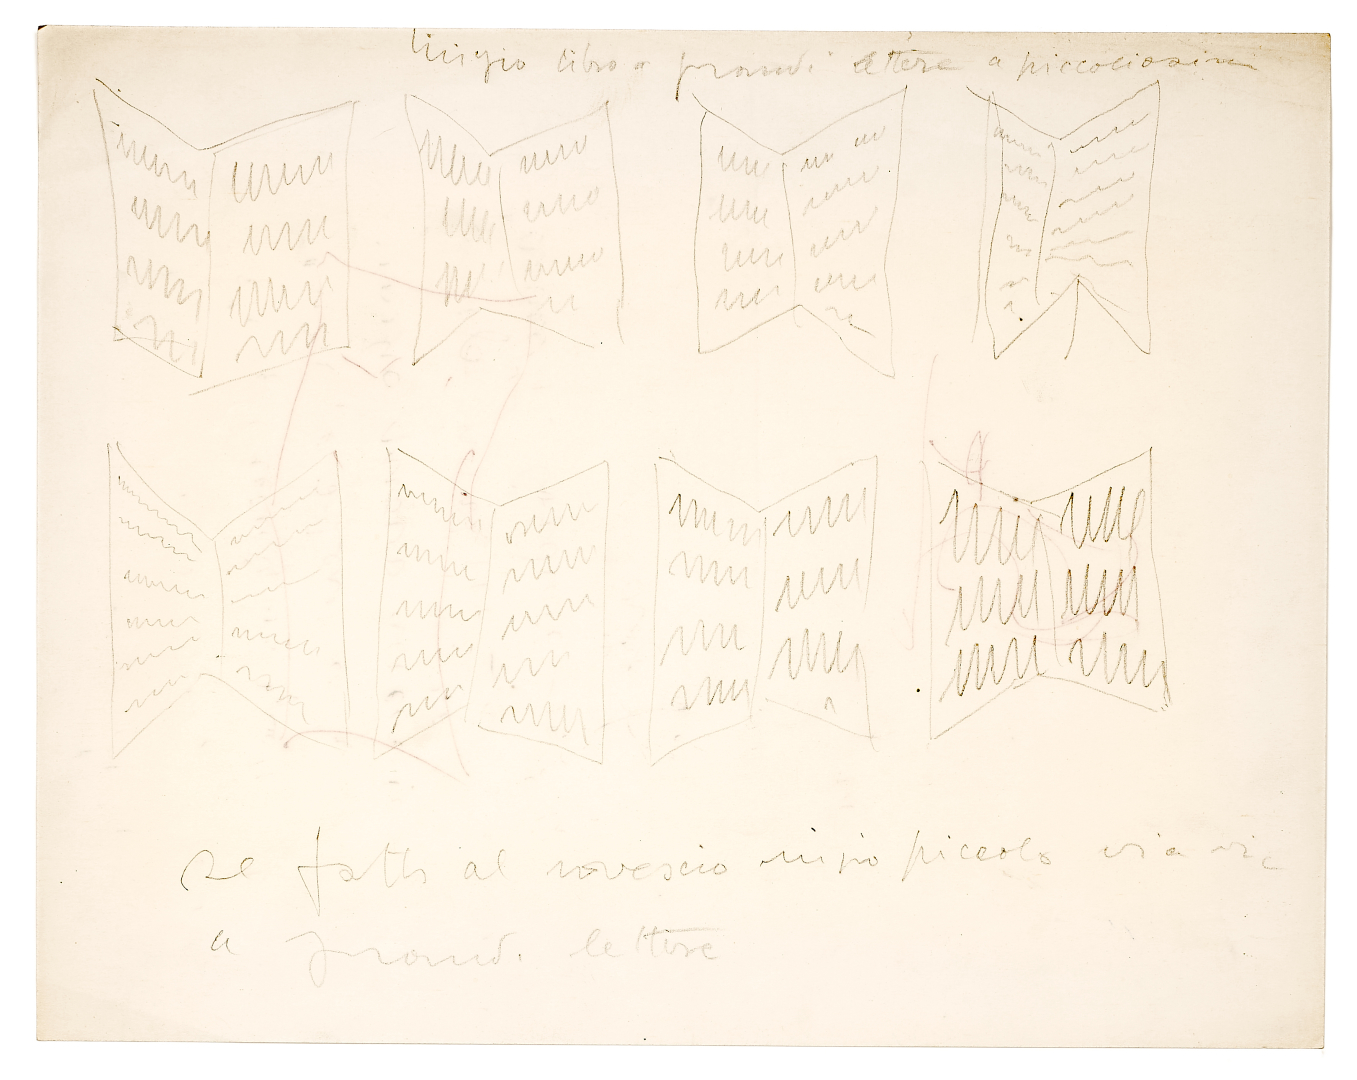 inizio libro a grandi lettere a piccolissime
se fatto al rovescio inizio piccolo via via
a grandi lettere